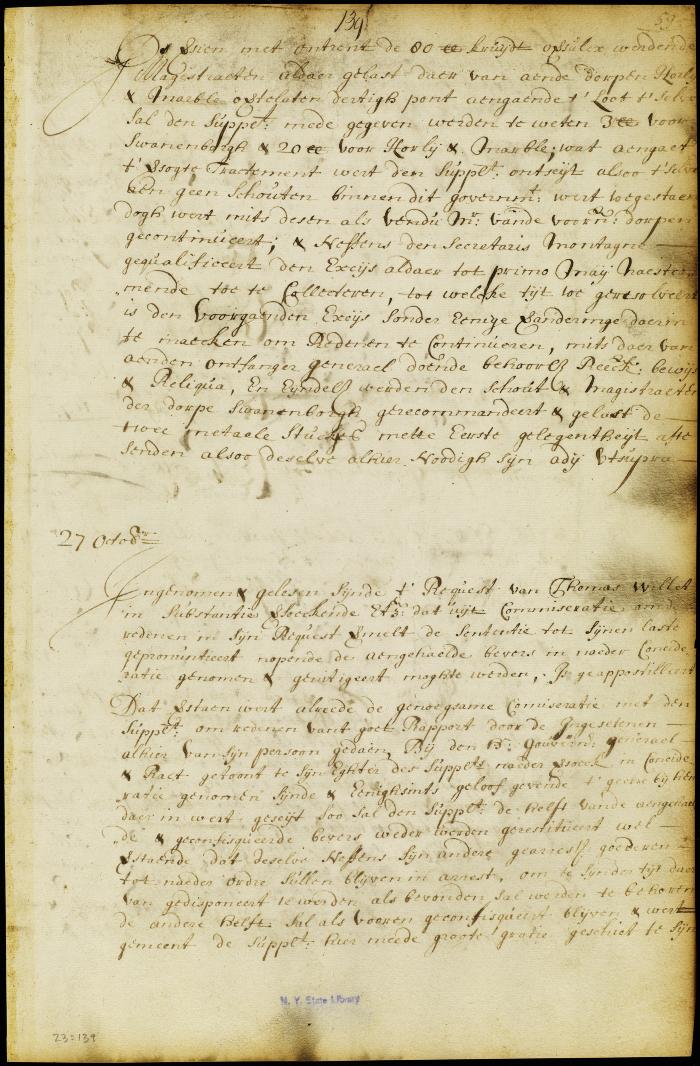 139
59
sien met ontrent de 80 ℔ kruijt
Magistraeten aldaer gelast daer van aende dorpen Horly
& Marble dertigh pont aengaende t' Loot t'selve
sal den Supplt: mede gegeven werden te weten 3 ℔ voor
Swanenborgh & 20 ℔ voor Horly & Marble; wat aengaet
t' Tractement wert den Supplt: ontseijt alsoo t'selve
aen geen Schouten binnen dit governmt: wert toegestaen
dogh wert mits desen als Vendu Mr: vande voorn: dorpen
gecontinueert; & Neffens den Secretaris Montagne
gequalificeert den Excijs aldaer tot primo Maij naestco
mende toe te Collecteren, tot welcke tijt toe geresolveert
is den Voorgaenden Excijs sonder Eenige Veranderinge daer in
te maecken om Redenen te Continueren, mits daer van
aenden ontfanger generael doende behoorl: Reeck: bewijs
& Reliqua, En Eyndel: werden den Schout & Magistraeten
der dorpe Swanenborgh gerecommandeert & gelast de
twee metaele Stuckjes mette Eerste gelegentheijt af te
senden alsoo deselve alhier Noodigh sijn adij Utsupra
27 Octobr:
Ingenomen & gelesen sijnde t' Request van Thomas Willet
in Substantie versoeckende Etc: dat uijt Commiseratie om de
redenen in sijn Request vermelt de Sententie tot sijnen laste
gepronuntieert nopende de aengehaelde bevers in naeder Conside
ratie genomen & gemitigeert moghte werden, Is geappostilleert
Dat verstaen wert alreede de genoegsame Comiseratie met den
Supplt: om redenen vant goet Rapport door de Ingesetenen
alhier van sijn persoon gedaen, Bij den Hr: Gouverneur generael
& Raet getoont te sijn Eghter des Supplts naeder versoeck in Conside
ratie genomen sijnde & Eenighsints geloof gevende t' geene bij hem
daer in wert geseijt soo sal den Supplt: de helft vande aengehael
de & geconfisqueerde bevers weder werden gerestitueert wel
verstaende dat deselve Neffens sijn andere gearrest: goederen
tot naeder ordre sullen blijven in arrest, om te sijnder tijt daer
van gedisponeert te werden als bevonden sal werden te behooren
de andere helft sal als vooren geconfisqueert blijven & wert
gemeent de Supplt: hier meede groote gratie geschiet te sijn
N. Y. State Library
23:139